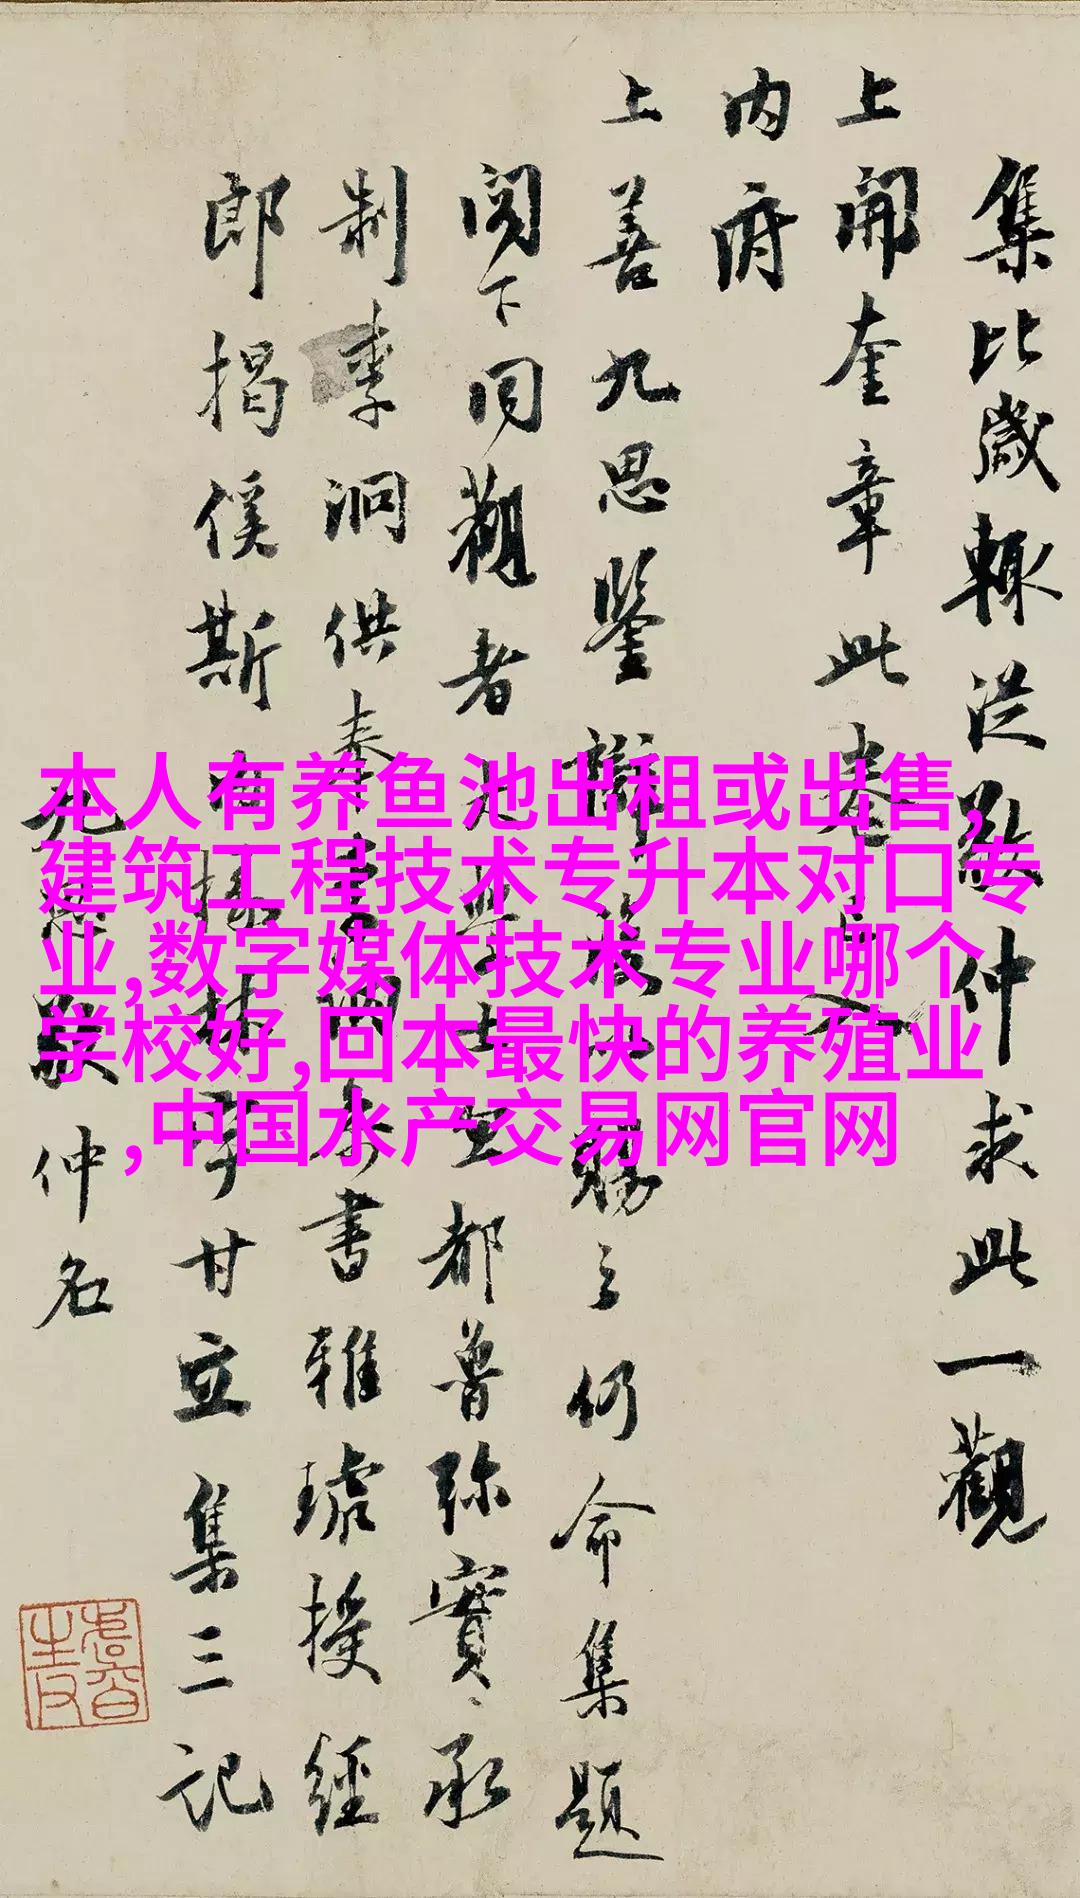 集比歲輒從敬仲求此一觀
上開奎章此卷入
内府
上善九思鑒辯賜之仍命集題
閣下同觀者大學士都魯弥實、承
制李泂供奉書雅琥授經
郎揭傒斯内掾林宇甘立集三記
敬仲名
本人有养鱼池出租或出售,
建筑工程技术专升本对口专
业,数字媒体技术专业哪个
学校好,回本最快的养殖业
,中国水产交易网官网